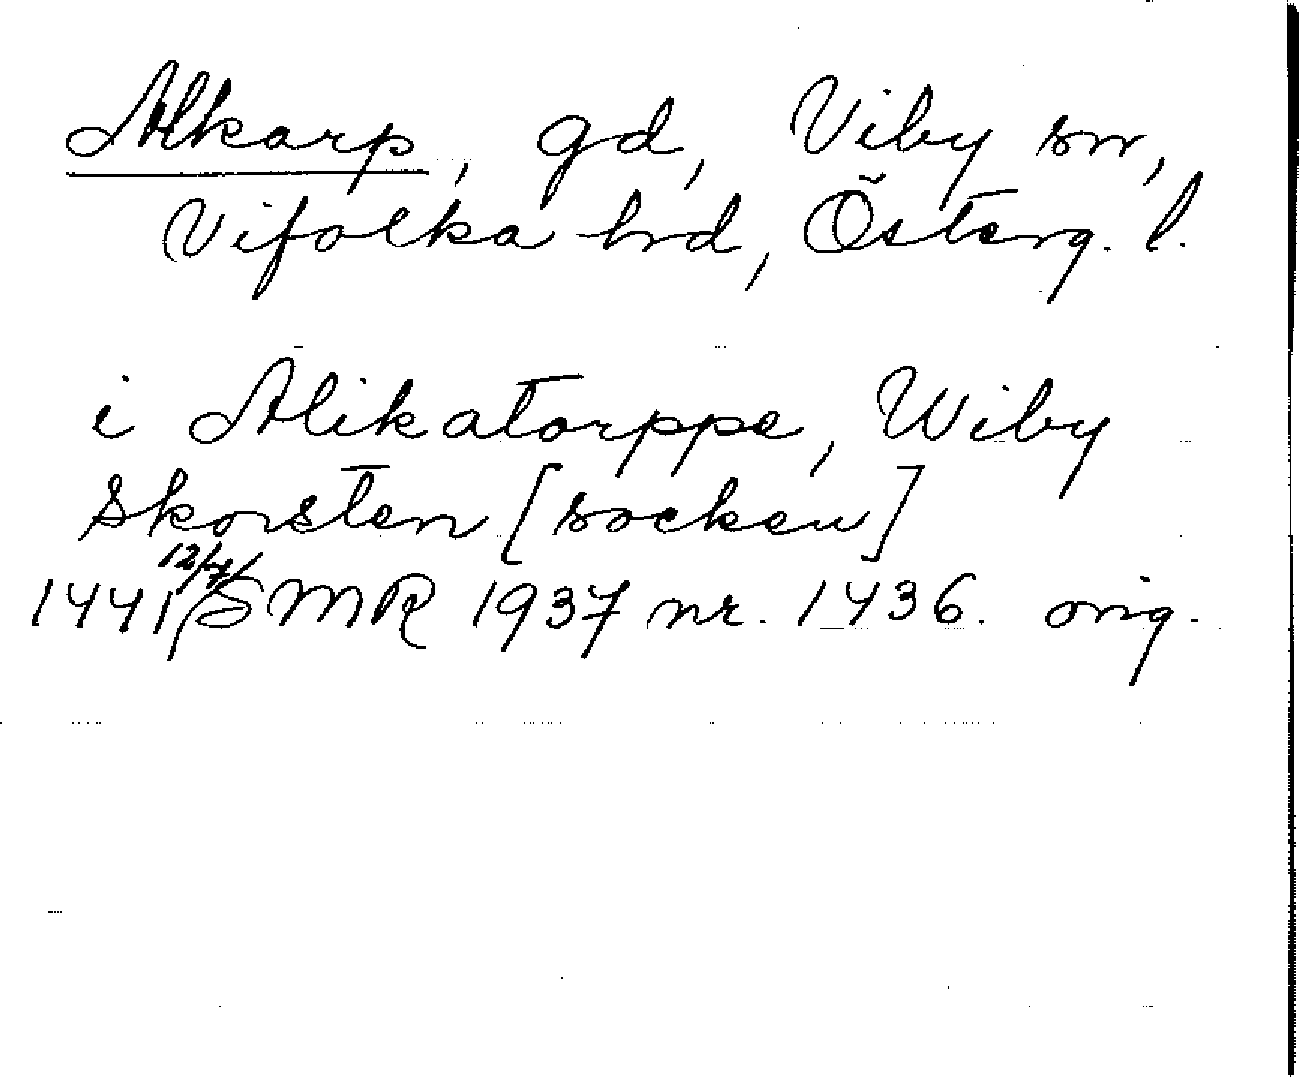 Alkarp, gd, Viby sn,
Vifolka hrd, Österg. l.
i Alikatorppe, Wiby
Skorsten [socken]
1441 12/4/ SMR 1937 nr. 1436. orig.